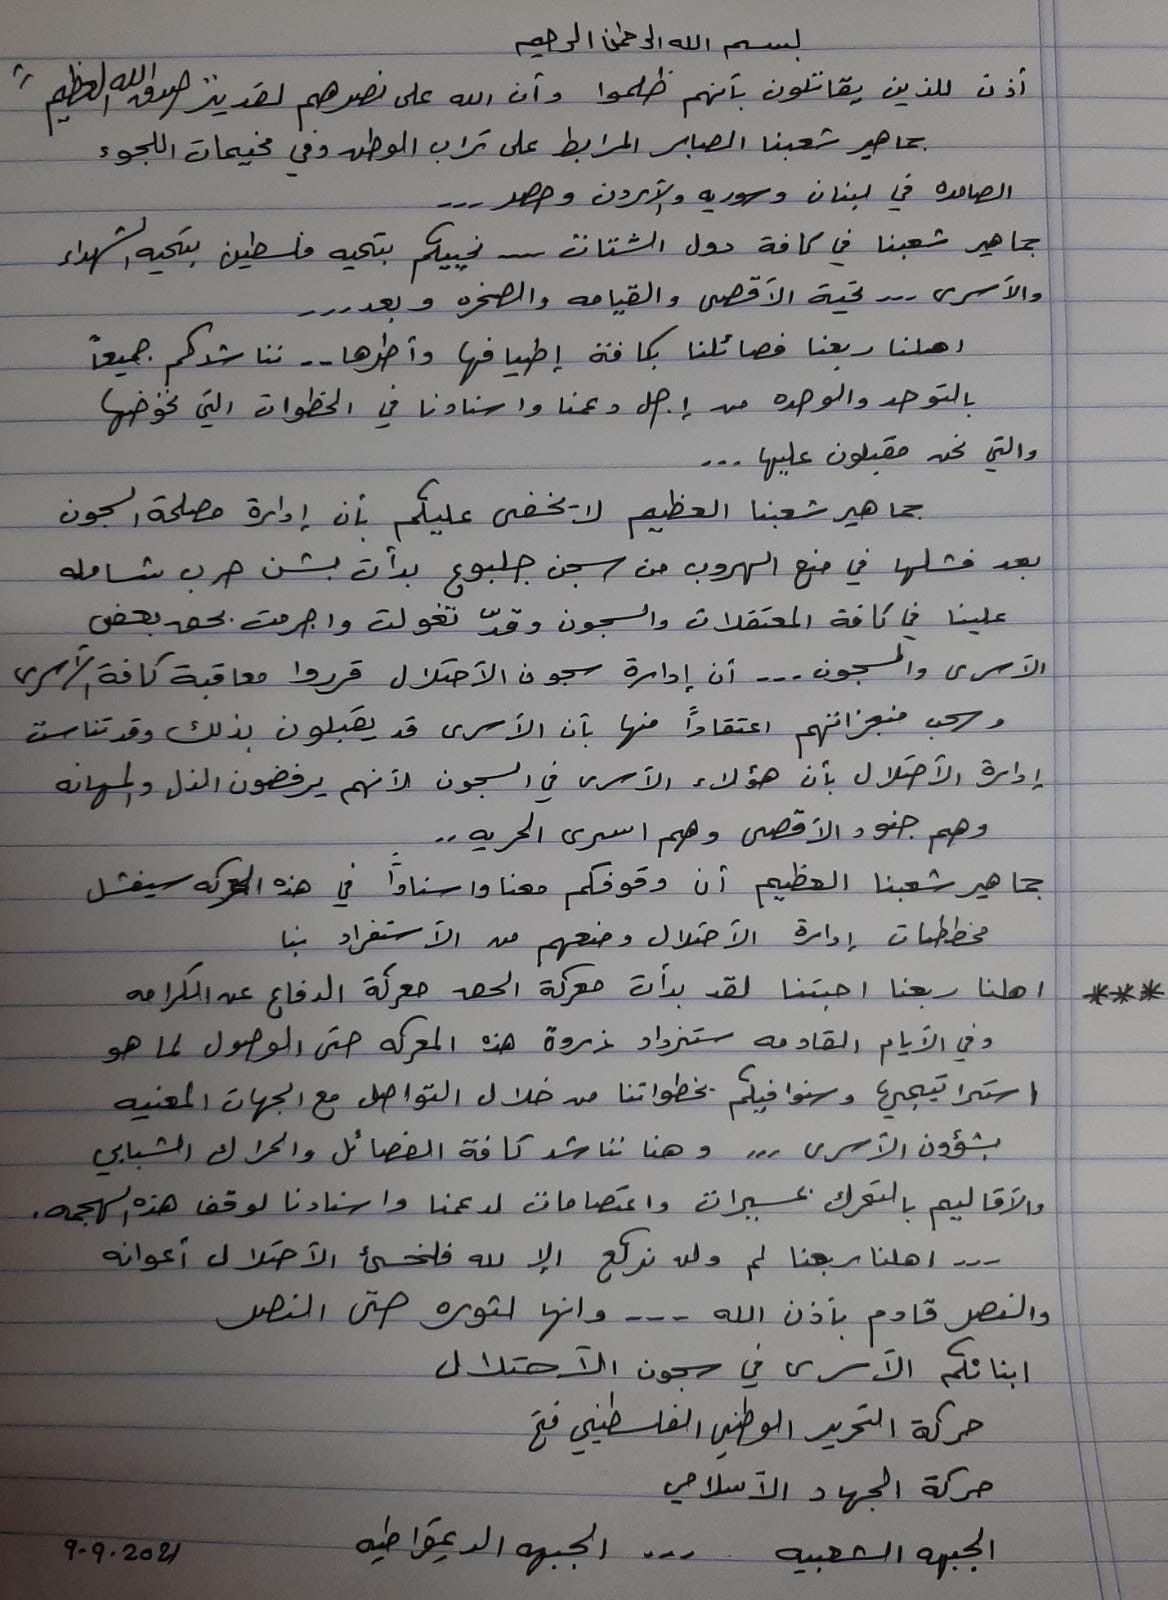 بسم الله الرحمن الرحيم
أذن للذين يقاتلون بأنهم ظلموا وأن الله على نصرهم لقدير صدق الله العظيم
جماهير شعبنا الصابر المرابط على تراب الوطن وفي مخيمات اللجوء
الصامده في لبنان وسوريه والأردن ومصر ---
جماهير شعبنا في كافة دول الشتات --- نحييكم بتحيه فلسطين بتحيه الشهداء
والأسرى --- تحية الأقصى والقيامه والصخره وبعد ---
اهلنا ربعنا فصائلنا بكافة إطيافها وأطرها -- نناشدكم جميعاً
بالتوحد والوحده من إجل دعمنا واسنادنا في الخطوات التي نخوضها
والتي نحن مقبلون عليها ---
جماهير شعبنا العظيم لا يخفى عليكم بأن إدارة مصلحة السجون
بعد فشلها في منع الهروب من سجن جلبوع بدأت بشن حرب شامله
علينا في كافة المعتقلات والسجون وقدّ تغولت واجرمت بحق بعض
الأسرى والسجون --- أن إدارة سجون الأحتلال قرروا معاقبة كافة الأسرى
وسحب منجزاتهم اعتقاداً منها بأن الأسرى قد يقبلون بذلك وقد تناست
إدارة الأحتلال بأن هؤلاء الأسرى في السجون لأنهم يرفضون الذل والمهانه
وهم جنود الأقصى وهم اسرى الحريه ..
جماهير شعبنا العظيم أن وقوفكم معنا واسناداً في هذه المعركه سيفشل
مخططات إدارة الأحتلال ومنعهم من الأستفراد بنا
*** اهلنا ربعنا احبتنا لقد بدأت معركة الحق معركة الدفاع عن الكرامه
وفي الأيام القادمه ستزداد ذروة هذه المعركه حتى الوصول لما هو
استراتيجيها وسنوافيكم بخطواتنا من خلال التواصل مع الجهات المعنيه
بشؤون الأسرى --- وهنا نناشد كافة الفصائل والحراك الشبابي
والأقاليم بالتحرك بمسيرات واعتصامات لدعمنا واسنادنا لوقف هذه الهجمه.
--- اهلنا ربعنا لم ولن نركع إلا لله فلخسئ الأحتلال أعوانه
والنصر قادم بأذن الله --- وانها لثوره حتى النصر
ابنائكم الأسرى في سجون الأحتلال
حركة التحرير الوطني الفلسطيني فتح
حركة الجهاد الأسلامي
الجبهه الشعبيه --- الجبهه الديمقراطيه 9.9.2021